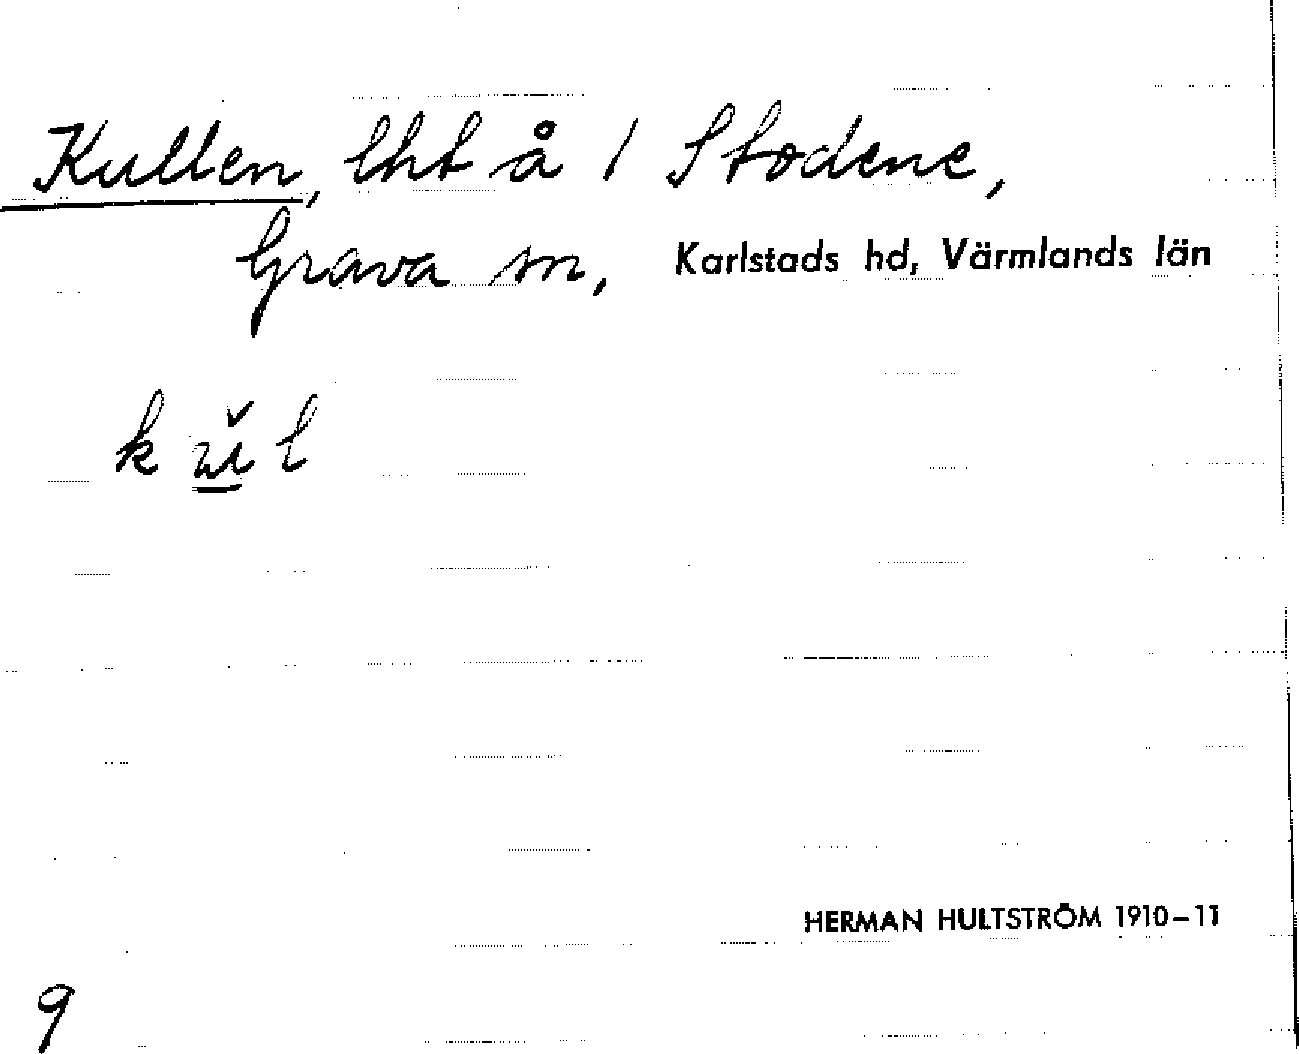 Kullen, lht å 1 Stodene,
Grava sn, Karlstads hd, Värmlands län
k ŭ l
HERMAN HULTSTRÖM 1910–11
9